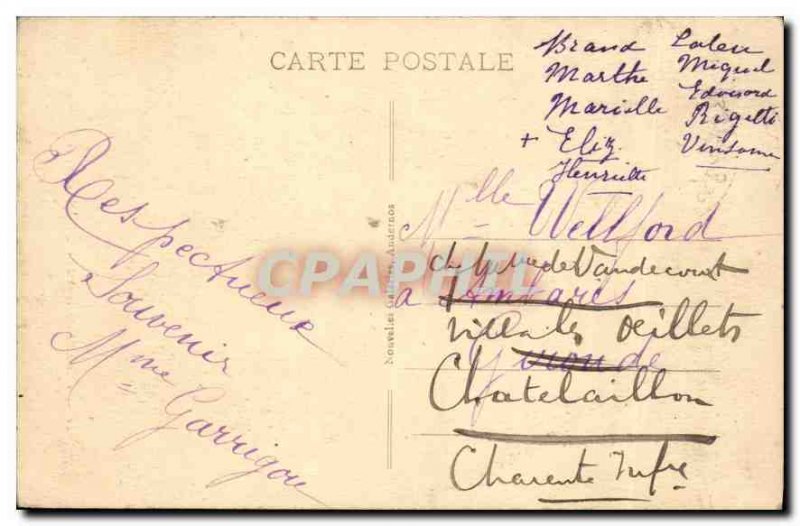 CARTE POSTALE
Brand
Marthe
Marielle
+ Eliz.
Henriette
Laleu
Miguel
Edouard
Rigetti
Respectueux
Souvenir
Mme Garrigou
Nouvelles Galeries, Andernos
Mlle Wellford
de Vandecourt
à Ambarès
Villa les Oeillets
Gironde
Chatelaillon
Charente Infre
CPAPHIL